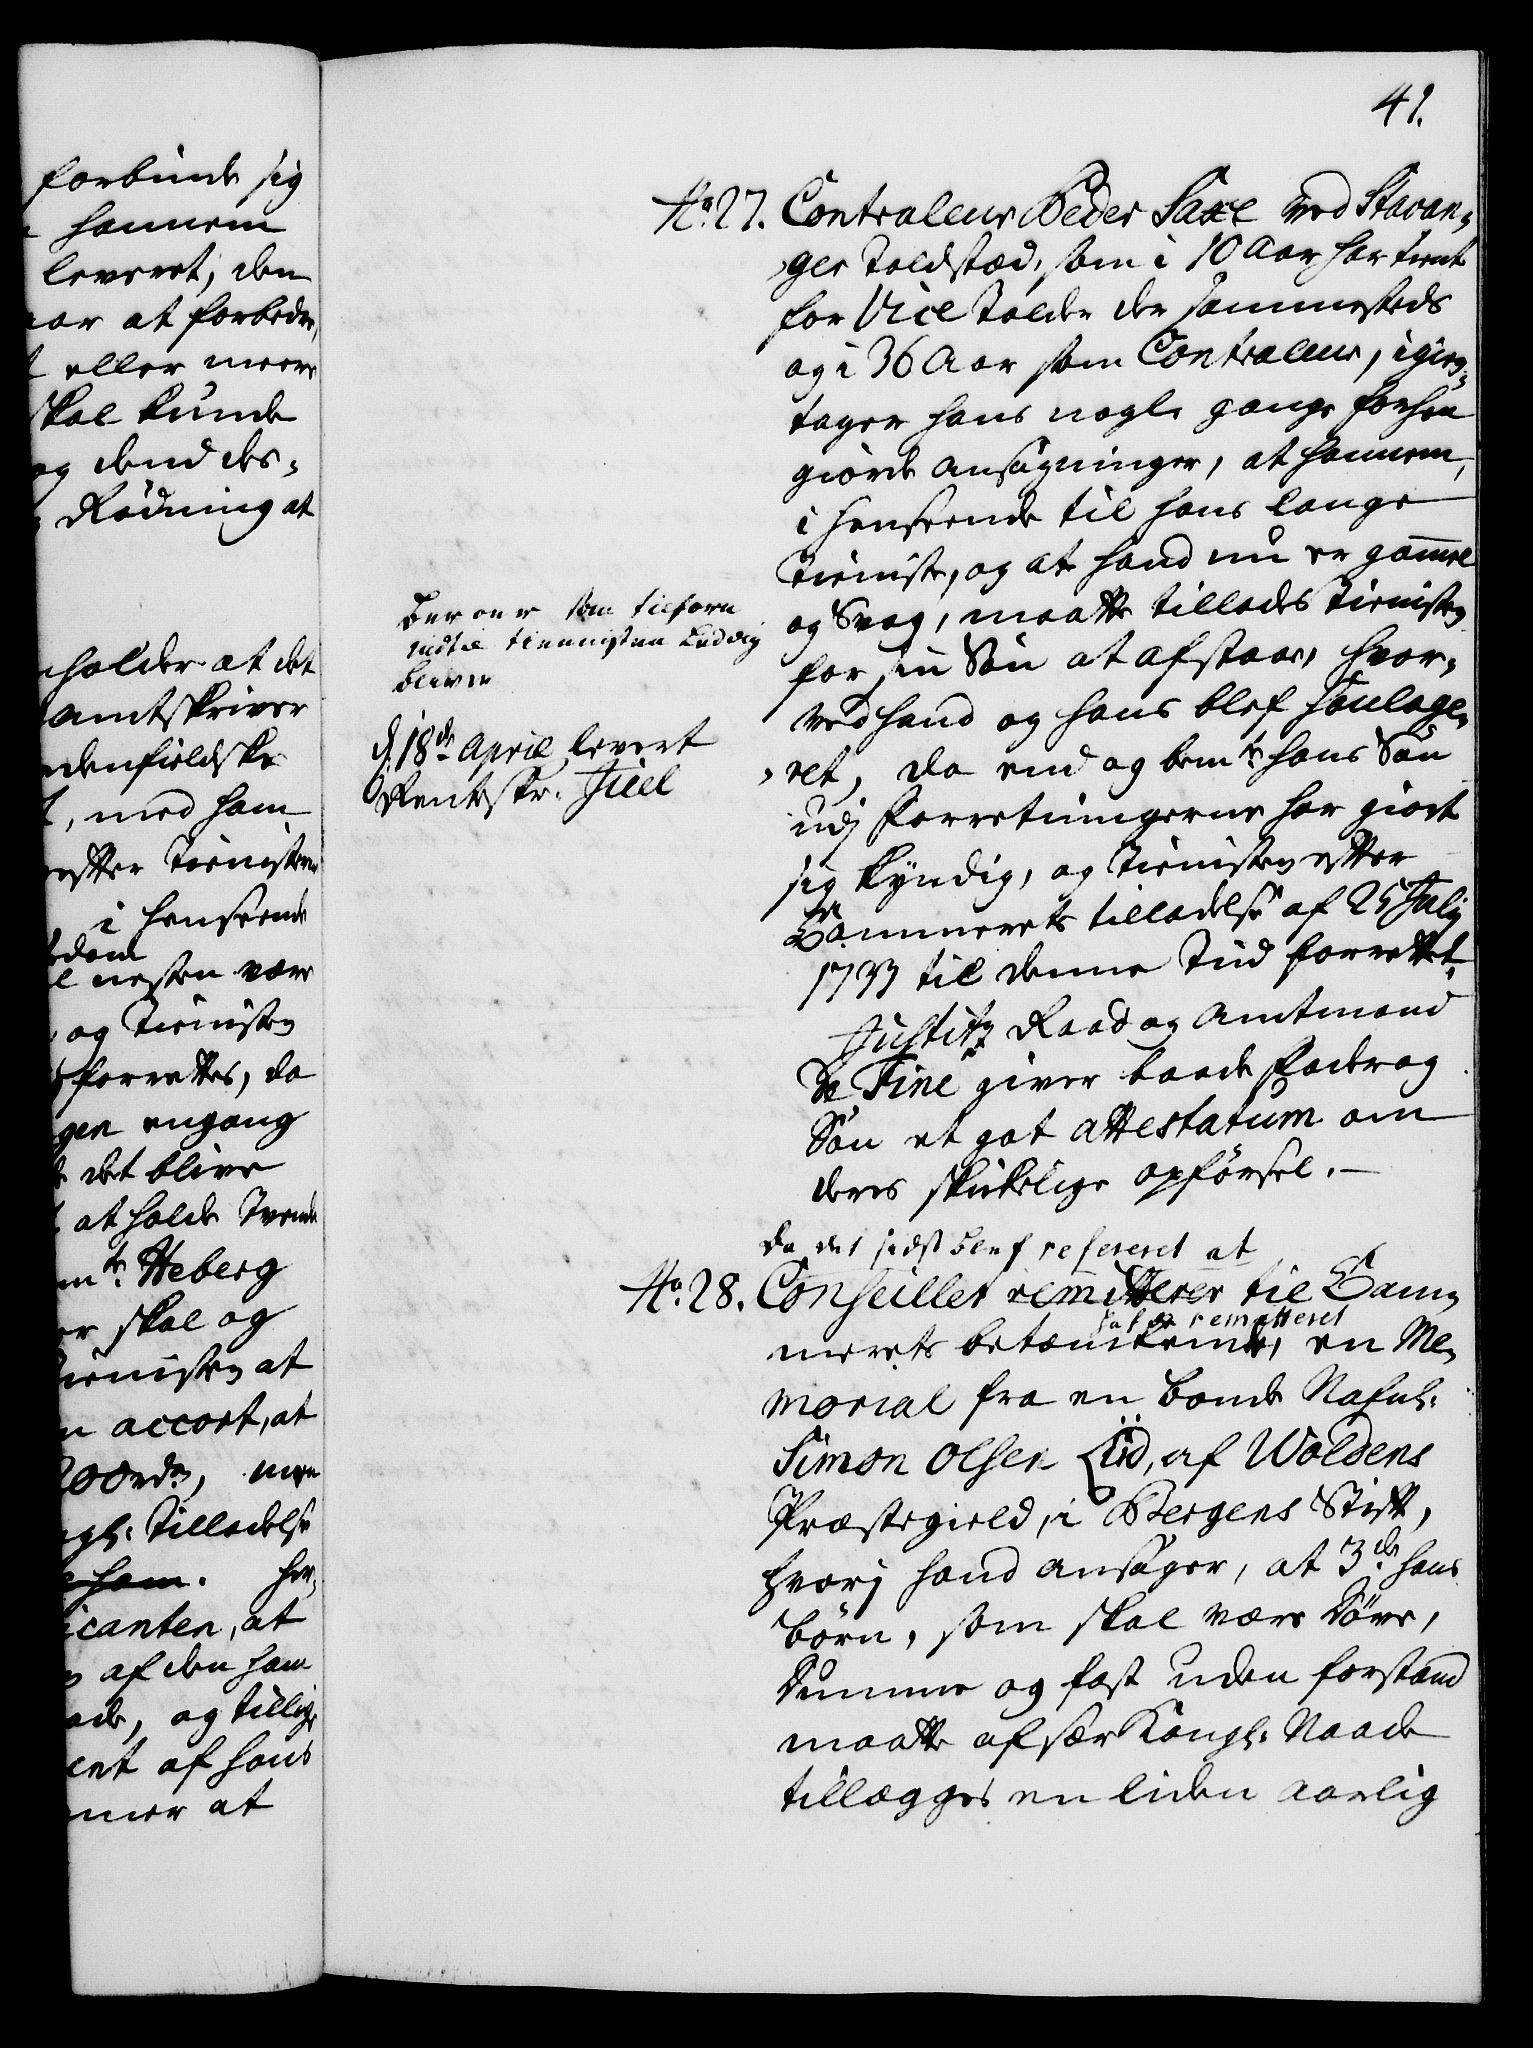 forbinde sig
hannem
leveret, den
aar at forbedre,
eller meere
skal kunde
og dend des-
Rødning at
holder at det
amtskriver
denfieldske
, med ham
efter Tienisten
i henseende
dom
nesten være
og Tienisten
forrettes, da
gen engang
det blive
at holde Tvende
mte Heberg
er skal og
ienisten at
n accort, at
200 rdr, men
gl: Tilladelse
ham. her,
icanten, at
af den ham
ade, og tillige
ent af hans
mer at
41.
No. 27. Contraleur Peder Saxe ved Stavan-
ger Toldstæd, som i 10 Aar har tient
for Vice Tolder der sammesteds
og i 36 Aar som Contraleur, igien-
tager hans nogle gange forhen
giørde ansøgninger, at hannem,
i henseende til hans lange
Tieniste, og at hand nu er gammel
og Svag, maatte tillades Tienisten
for sin Søn at afstaae, hvor-
ved hand og hans blef soulage-
ret, da end og bemte hans Søn
udj Forretningerne har giort
sig kyndig, og Tienisten efter
Cammerets tilladelse af 25 July
1733 til denne Tiid forrettet.
Justitz Raad og Amtmand
De Fine giver baade Fader og
Søn et got attestatum om
deres skikelige opførsel.
Beroer som tilforn
indtil tiennisten Ledig
bliver
d. 18de April levert
Renteskr. Juel
da det sidst blef refereret at
No. 28. Conseillet remitterer til Cam-
hafde remitteret
merets betænkende, en Me-
morial fra en bonde Nafnl:
Simon Olsen Liid, af Woldens
Præstegield, i Bergens Stift,
hvorj hand ansøger, at 3de hans
børn, som skal være Døve,
Dumme og fast uden forstand
maatte af sær Kongl: Naade
tillægges en liden aarlig